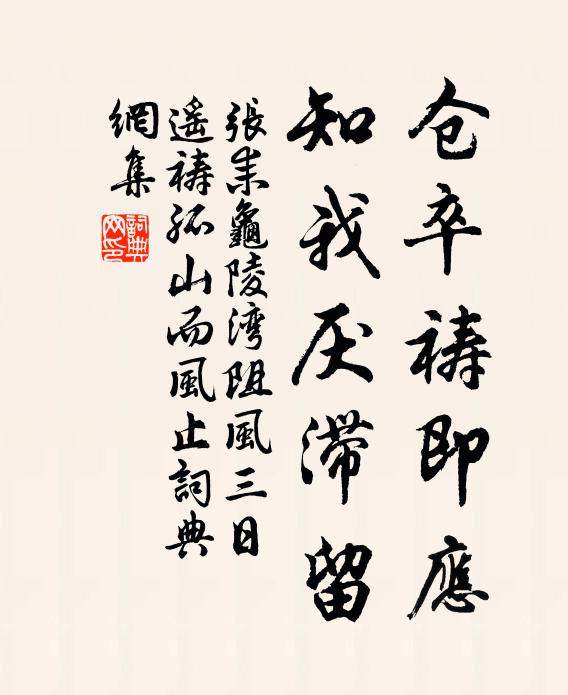 仓卒祷即應
知我厌滞留
張耒龜陵湾阻風三日
遥祷孤山而風止詞典
網集
詞典
网印